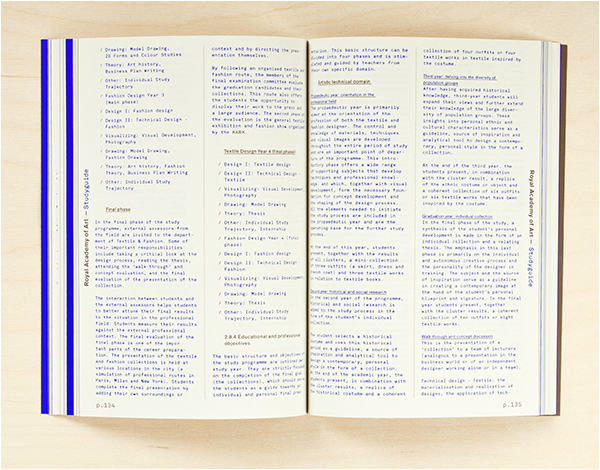 / Drawing: Model Drawing,
2D Forms and Colour Studies
/ Theory: Art history,
Business Plan Writing
/ Other: Individual Study
Trajectory
/ Fashion Design Year 3
(main phase)
/ Design I: Fashion design
/ Design II: Technical Design -
Fashion
/ Visualizing: Visual Development,
Photography
/ Drawing: Model Drawing,
Fashion Drawing
/ Theory: Art history, Fashion
Theory, Business Plan Writing
/ Other: Individual Study
Trajectory
Final phase
In the final phase of the study
programme, external assessors from
the field are invited to the depart-
ment of Textile & Fashion. Some of
their important responsibilities
include taking a critical look at the
design process, reading the thesis,
attending the "walk-through" and
concept evaluation, and the final
evaluation of the presentation of the
collection.
The interaction between students and
the external assessors helps students
to better attune their final results
to the situation in the professional
field. Students measure their results
against the external professional
context. The final evaluation of the
final phase is one of the impor-
tant parts of the career prepara-
tion. The presentation of the textile
and fashion collections is held at
various locations in the city (a
simulation of professional routes in
Paris, Milan and New York). Students
complete the final presentation by
adding their own surroundings or
context and by directing the pres-
entation themselves.
By following an organised textile and
fashion route, the members of the
final examination committee evaluate
the graduation candidates and their
collections. This route also offers
the students the opportunity to
display their work to the press and
a large audience. The second phase of
the evaluation is the general textile
exhibition and fashion show organised
by the KABK.
Textile Design Year 4 (final phase)
/ Design I: Textile design
/ Design II: Technical Design -
Textile
/ Visualizing: Visual Development,
Photography
/ Drawing: Model Drawing
/ Theory: Thesis
/ Other: Individual Study
Trajectory, Internship
/ Fashion Design Year 4 (final
phase)
/ Design I: Fashion design
/ Design II: Technical Design -
Fashion
/ Visualizing: Visual Development,
Photography
/ Drawing: Model Drawing
/ Theory: Thesis
/ Other: Individual Study
Trajectory, Internship
2.8.4 Educational and professional
objectives
The basic structure and objectives of
the study programme are outlined per
study year. They are strictly focused
on the completion of the final goal
(the collections), which should serve
the students as a guide towards an
individual and personal final pres-
Royal Academy of Art — Studyguide
p.134
entation. This basic structure can be
divided into four phases and is stim-
ulated and guided by teachers from
their own specific domain.
Artistic technical domain
Propaedeutic year: orientation in the
professional field
The propaedeutic year is primarily
aimed at the orientation of the
profession of both the textile and
fashion designer. The control and
knowledge of materials, techniques
and visual images are developed
throughout the entire period of study
and are an important point of depar-
ture of the programme. This intro-
ductory phase offers a wide range
of supporting subjects that develop
techniques and professional knowl-
edge, and which, together with visual
development, form the necessary foun-
dation for concept development and
the shaping of the design process.
All the elements needed to initiate
the study process are included in
the propaedeutic year and are the
depending base for the further study
process.
At the end of this year, students
present, together with the results
of all clusters, a mini-collection
of three outfits (a skirt, dress and
a coat) and three textile works
in relation to textile books.
Second year: historical and social research
In the second year of the programme,
historical and social research is
added to the study process in the
form of the student's individual
collection.
The student selects a historical
costume and uses this historical
period as a guideline, source of
inspiration and analytical tool to
design a contemporary, personal
style in the form of a collection.
At the end of the academic year, the
students present, in combination with
the cluster results, a replica of
the historical costume and a coherent
collection of four outfits or four
textile works in textile inspired by
the costume.
Third year: delving into the diversity of
population groups
After having acquired historical
knowledge, third-year students will
expand their views and further extend
their knowledge of the large diver-
sity of population groups. These
insights into personal ethnic and
cultural characteristics serve as a
guideline, source of inspiration and
analytical tool to design a contem-
porary, personal style in the form of
a collection.
At the end of the third year, the
students present, in combination
with the cluster result, a replica
of the ethnic costume or object and
a coherent collection of six outfits
or six textile works that have been
inspired by the costume.
Graduation year: individual collection
In the final phase of the study, a
synthesis of the student's personal
development is made in the form of an
individual collection and a relating
thesis. The emphasis in this last
phase is primarily on the individual
and autonomous creative process and
the personality of the designer in
training. The subject and the source
of inspiration serve as a guideline
in creating a contemporary image of
the hand of the student's personal
blueprint and signature. In the final
year students present, together
with the cluster results, a coherent
collection of two outfits or eight
textile works.
Walk-through and concept discussion
This is the presentation of a
'collection' to a team of lecturers
(analogous to a presentation in the
business world or of an independent
designer working alone or in a team).
Technical design - Textile: the
materialisation and realisation of
designs, the application of tech-
Royal Academy of Art — Studyguide
p.135